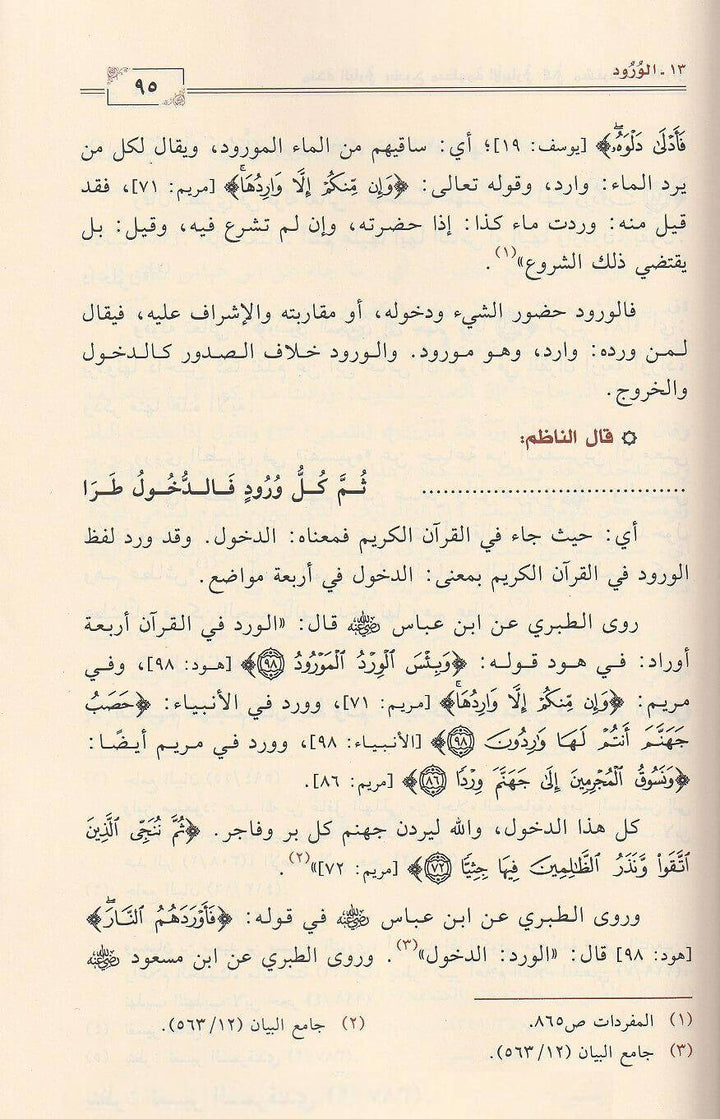 ١٣ ـ الوُرُود
٩٥
فَأَدْلَىٰ دَلْوَهُۥۖ﴾ [يوسف: ١٩]؛ أي: ساقيهم من الماء المورود، ويقال لكل من
يرد الماء: وارد، وقوله تعالى: ﴿وَإِن مِّنكُمْ إِلَّا وَارِدُهَاۚ﴾ [مريم: ٧١]، فقد
قيل منه: وردت ماء كذا: إذا حضرته، وإن لم تشرع فيه، وقيل: بل
يقتضي ذلك الشروع»(١).
فالورود حضور الشيء ودخوله، أو مقاربته والإشراف عليه، فيقال
لمن ورده: وارد، وهو مورود. والورود خلاف الصدور كالدخول
والخروج.
۞ قال الناظم:
.................................. ثُمَّ كُلُّ وُرُودٍ فَالدُّخُولُ طَرَا
أي: حيث جاء في القرآن الكريم فمعناه: الدخول. وقد ورد لفظ
الورود في القرآن الكريم بمعنى: الدخول في أربعة مواضع.
روى الطبري عن ابن عباس رضي الله عنه قال: «الورد في القرآن أربعة
أوراد: في هود قوله: ﴿وَبِئْسَ الْوِرْدُ الْمَوْرُودُ ٩٨﴾ [هود: ٩٨]، وفي
مريم: ﴿وَإِن مِّنكُمْ إِلَّا وَارِدُهَاۚ﴾ [مريم: ٧١]، وورد في الأنبياء: ﴿حَصَبُ
جَهَنَّمَ أَنتُمْ لَهَا وَارِدُونَ ٩٨﴾ [الأنبياء: ٩٨]، وورد في مريم أيضًا:
﴿وَنَسُوقُ الْمُجْرِمِينَ إِلَىٰ جَهَنَّمَ وِرْدًا ٨٦﴾ [مريم: ٨٦].
كل هذا الدخول، والله ليردن جهنم كل بر وفاجر. ﴿ثُمَّ نُنَجِّي الَّذِينَ
اتَّقَوا وَّنَذَرُ الظَّالِمِينَ فِيهَا جِثِيًّا ٧٢﴾ [مريم: ٧٢]»(٢).
وروى الطبري عن ابن عباس رضي الله عنه في قوله: ﴿فَأَوْرَدَهُمُ النَّارَۖ﴾
[هود: ٩٨] قال: «الورد: الدخول»(٣). وروى الطبري عن ابن مسعود رضي الله عنه
(١) المفردات ص٨٦٥.
(٢) جامع البيان (٥٦٣/١٢).
(٣) جامع البيان (٥٦٣/١٢).